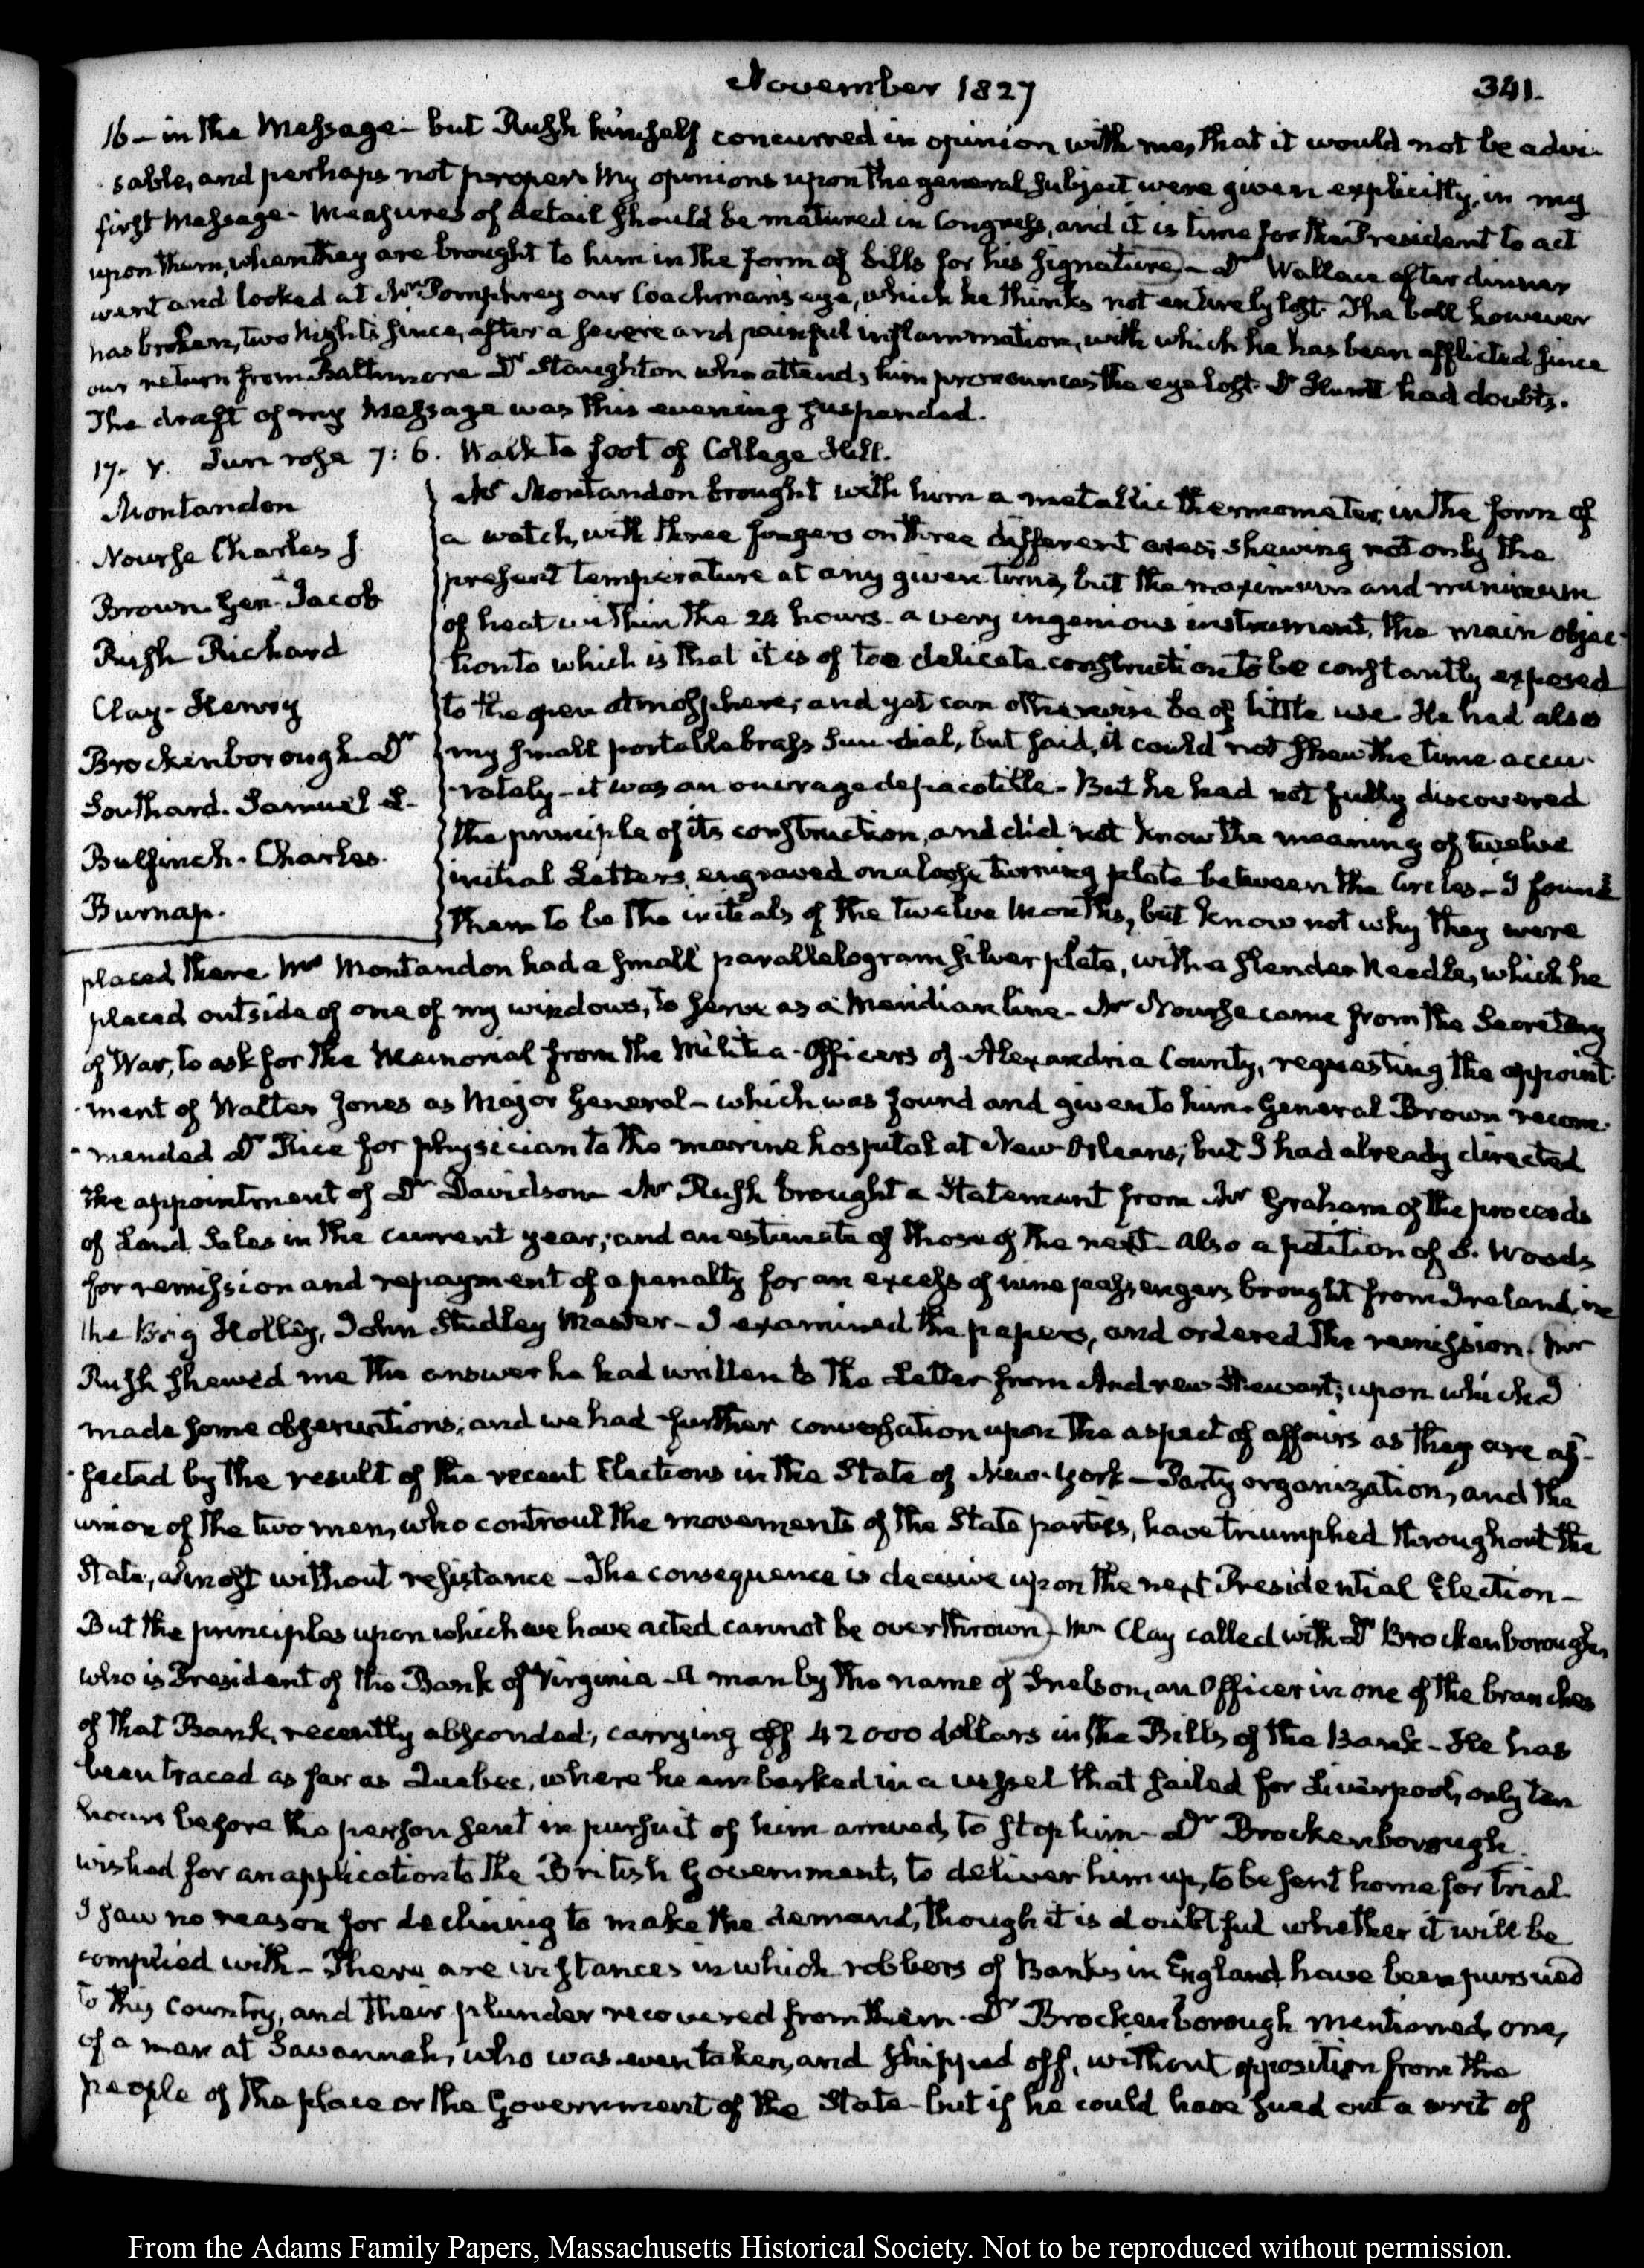 November 1827
341.
16 – in the Message – but Rush himself concurred in opinion with me, that it would not be advi-
sable, and perhaps not proper. My opinions upon the general subject were given explicitly, in my
first Message – Measures of detail should be matured in Congress, and it is time for the President to act
upon them, when they are brought to him in the form of bills for his signature – Dr Wallace after dinner
went and looked at Mr Pomphrey our Coachman's eye, which he thinks not entirely lost. The ball however
has broken, two Nights since, after a severe and painful inflammation, with which he has been afflicted since
our return from Baltimore Dr Staughton who attends him pronounces the eye lost Dr Hunt had doubts.
The draft of my Message was this evening suspended.
17. V. Sun rose 7: 6. Walk to foot of College Hill.
Montandon
Nourse Charles J.
Brown. Gen. Jacob
Rush Richard
Clay – Henry
Brockenborough Dr
Southard. Samuel L.
Bulfinch. Charles.
Burnap.
Mr Montandon brought with him a metallic thermometer, in the form of
a watch, with three fingers on three different axes; shewing not only the
present temperature at any given time, but the maximum and minimum
of heat within the 24 hours – a very ingenious instrument, the main objec-
tion to which is that it is of too delicate construction to be constantly exposed
to the open atmosphere; and yet can otherwise be of little use. He had also
my small portable brass Sun-dial, but said, it could not shew the time accu-
rately – it was an ouvrage de pacotille – But he had not fully discovered
the principle of its construction, and did not know the meaning of twelve
initial Letters, engraved on a loose turning plate between the Circles – I found
them to be the initials of the twelve Months, but know not why they were
placed there. Mr Montandon had a small parallelogram silver plate, with a slender Needle, which he
placed outside of one of my windows, to serve as a Meridian line – Mr Nourse came from the Secretary
of War, to ask for the Memorial from the Militia Officers of Alexandria County, requesting the appoint-
ment of Walter Jones as Major General – which was found and given to him – General Brown recom-
mended Dr Rice for physician to the marine hospital at New-Orleans; but I had already directed
the appointment of Dr Davidson – Mr Rush brought a Statement from Mr Graham of the proceeds
of Land Sales in the current year; and an estimate of those of the next – also a petition of S. Woods
for remission and repayment of a penalty for an excess of nine passengers brought from Ireland, in
the Brig Holley, John Studley Master – I examined the papers, and ordered the remission. Mr
Rush shewed me the answer he had written to the Letter from Andrew Stewart; upon which I
made some observations; and we had further conversation upon the aspect of affairs as they are af-
fected by the result of the recent Elections in the State of New-York – Party organization, and the
union of the two men, who controul the movements of the State parties, have triumphed throughout the
State, almost without resistance – The consequence is decisive upon the next Presidential Election –
But the principles upon which we have acted cannot be overthrown – Mr Clay called with Dr Brockenborough,
who is President of the Bank of Virginia – A man by the name of Snelson, an Officer in one of the branches
of that Bank, recently absconded, carrying off 42000 dollars in the Bills of the Bank – He has
been traced as far as Quebec, where he embarked in a vessel that sailed for Liverpool, only ten
hours before the person sent in pursuit of him arrived, to stop him – Dr Brockenborough
wished for an application to the British Government, to deliver him up, to be sent home for trial
I saw no reason for declining to make the demand, though it is doubtful whether it will be
complied with – There are instances in which robbers of Banks in England, have been pursued
to this Country, and their plunder recovered from them. Dr Brockenborough mentioned one,
of a man at Savannah, who was even taken, and shipped off, without opposition from the
people of the place or the Government of the State – but if he could have sued out a writ of
From the Adams Family Papers, Massachusetts Historical Society. Not to be reproduced without permission.